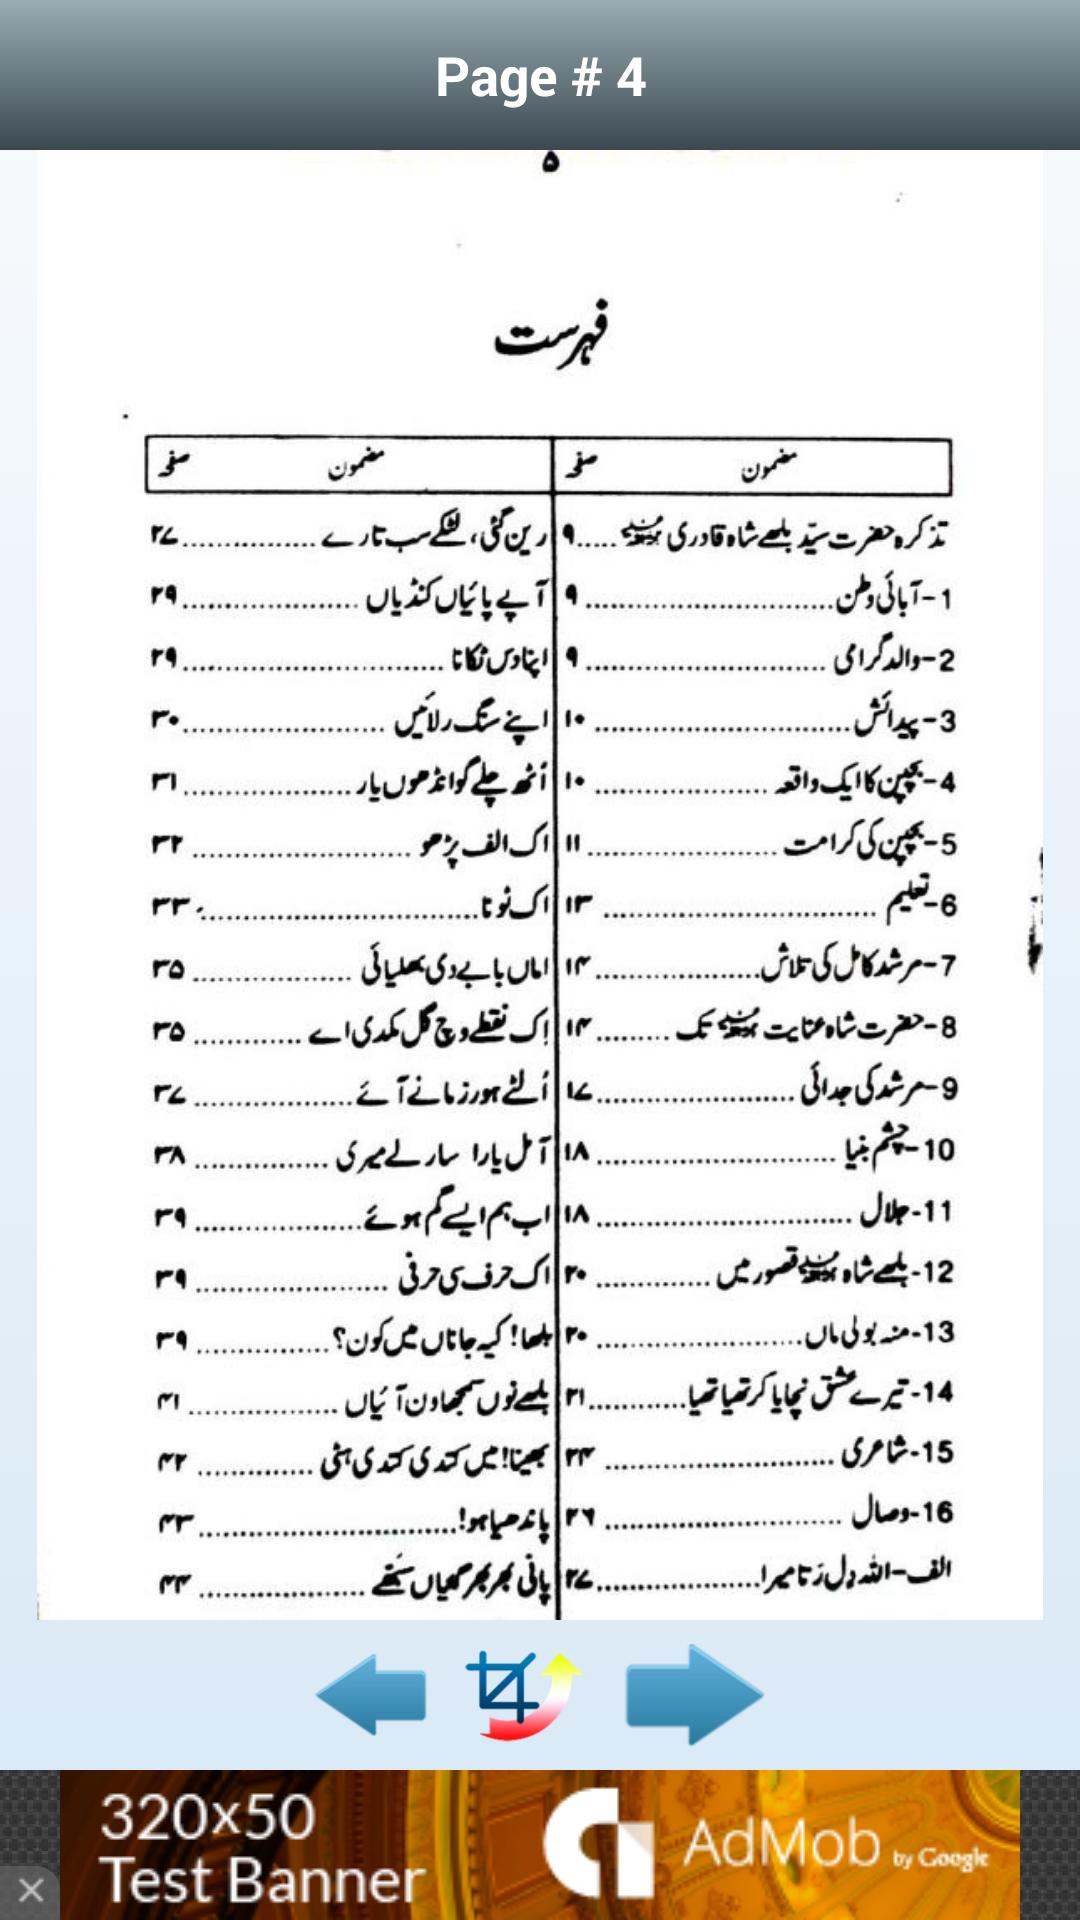 Page # 4
۵
فہرست
مضمون صفحہ
تذکرہ حضرت سیّد بلھے شاہ قادری ؒ .....۹
1-آبائی وطن........................... ۹
2-والد گرامی .......................... ۹
3-پیدائش............................ ۱۰
4-بچپن کا ایک واقعہ ................... ۱۰
5-بچپن کی کرامت .....................۱۱
6-تعلیم .............................. ۱۳
7-مرشد کامل کی تلاش..................۱۴
8-حضرت شاہ عنایت ؒ تک ........۱۴
9-مرشد کی جدائی ......................۱۷
10-چشم بنیا ..........................۱۸
11-جلال ............................ ۱۸
12-بلھے شاہ ؒ قصور میں ............. ۲۰
13-منہ بولی ماں....................... ۲۰
14-تیرے عشق نچایا کر تھیا تھیا...........۲۱
15-شاعری ......................... ۲۴
16-وصال .......................... ۲۶
الف-اللہ دِل رَتا میرا..................۲۷
مضمون صفحہ
رین گئی، لٹکے سب تارے ...............۲۷
آپے پائیاں کنڈیاں ....................۲۹
اپنا دس ٹکانا .............................۲۹
اپنے سنگ رلائیں .......................۳۰
اُٹھ چلے گوانڈھوں یار...................۳۱
اک الف پڑھو ........................ ۳۲
اک ٹونا...............................۳۳
اماں بابے دی بھلیائی .................. ۳۵
اِک نقطے وچ گل مکدی اے ............ ۳۵
اُلٹے ہور زمانے آئے..................۳۷
آ مل یارا سار لے میری ............... ۳۸
اب ہم ایسے گم ہوئے................... ۳۹
اک حرف سی حرفی ..................... ۳۹
بلھا! کیہ جاناں میں کون؟............... ۳۹
بلھے نوں سمجھاون آئیاں ................ ۴۱
بھینا! میں کتدی کتدی ہٹی ............. ۴۲
پاندھیا ہو!.............................۴۳
پانی بھر بھر گھیاں سَبھے .................. ۴۴
320x50
Test Banner
AdMob by Google